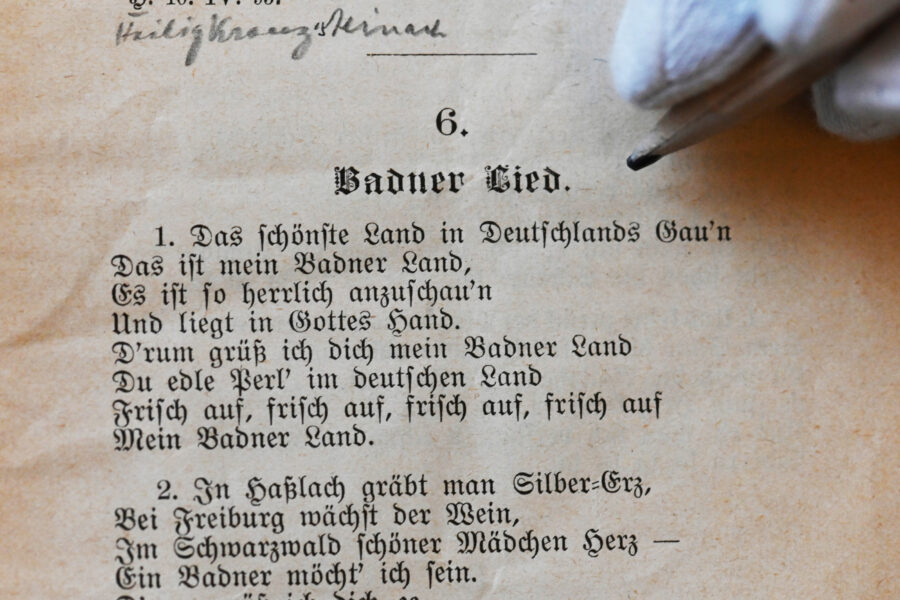 6.
Badner Lied.
1. Das schönste Land in Deutschlands Gau'n
Das ist mein Badner Land,
Es ist so herrlich anzuschau'n
Und liegt in Gottes Hand.
D'rum grüß ich dich mein Badner Land
Du edle Perl' im deutschen Land
Frisch auf, frisch auf, frisch auf, frisch auf
Mein Badner Land.
2. In Haßlach gräbt man Silber-Erz,
Bei Freiburg wächst der Wein,
Im Schwarzwald schöner Mädchen Herz —
Ein Badner möcht' ich sein.